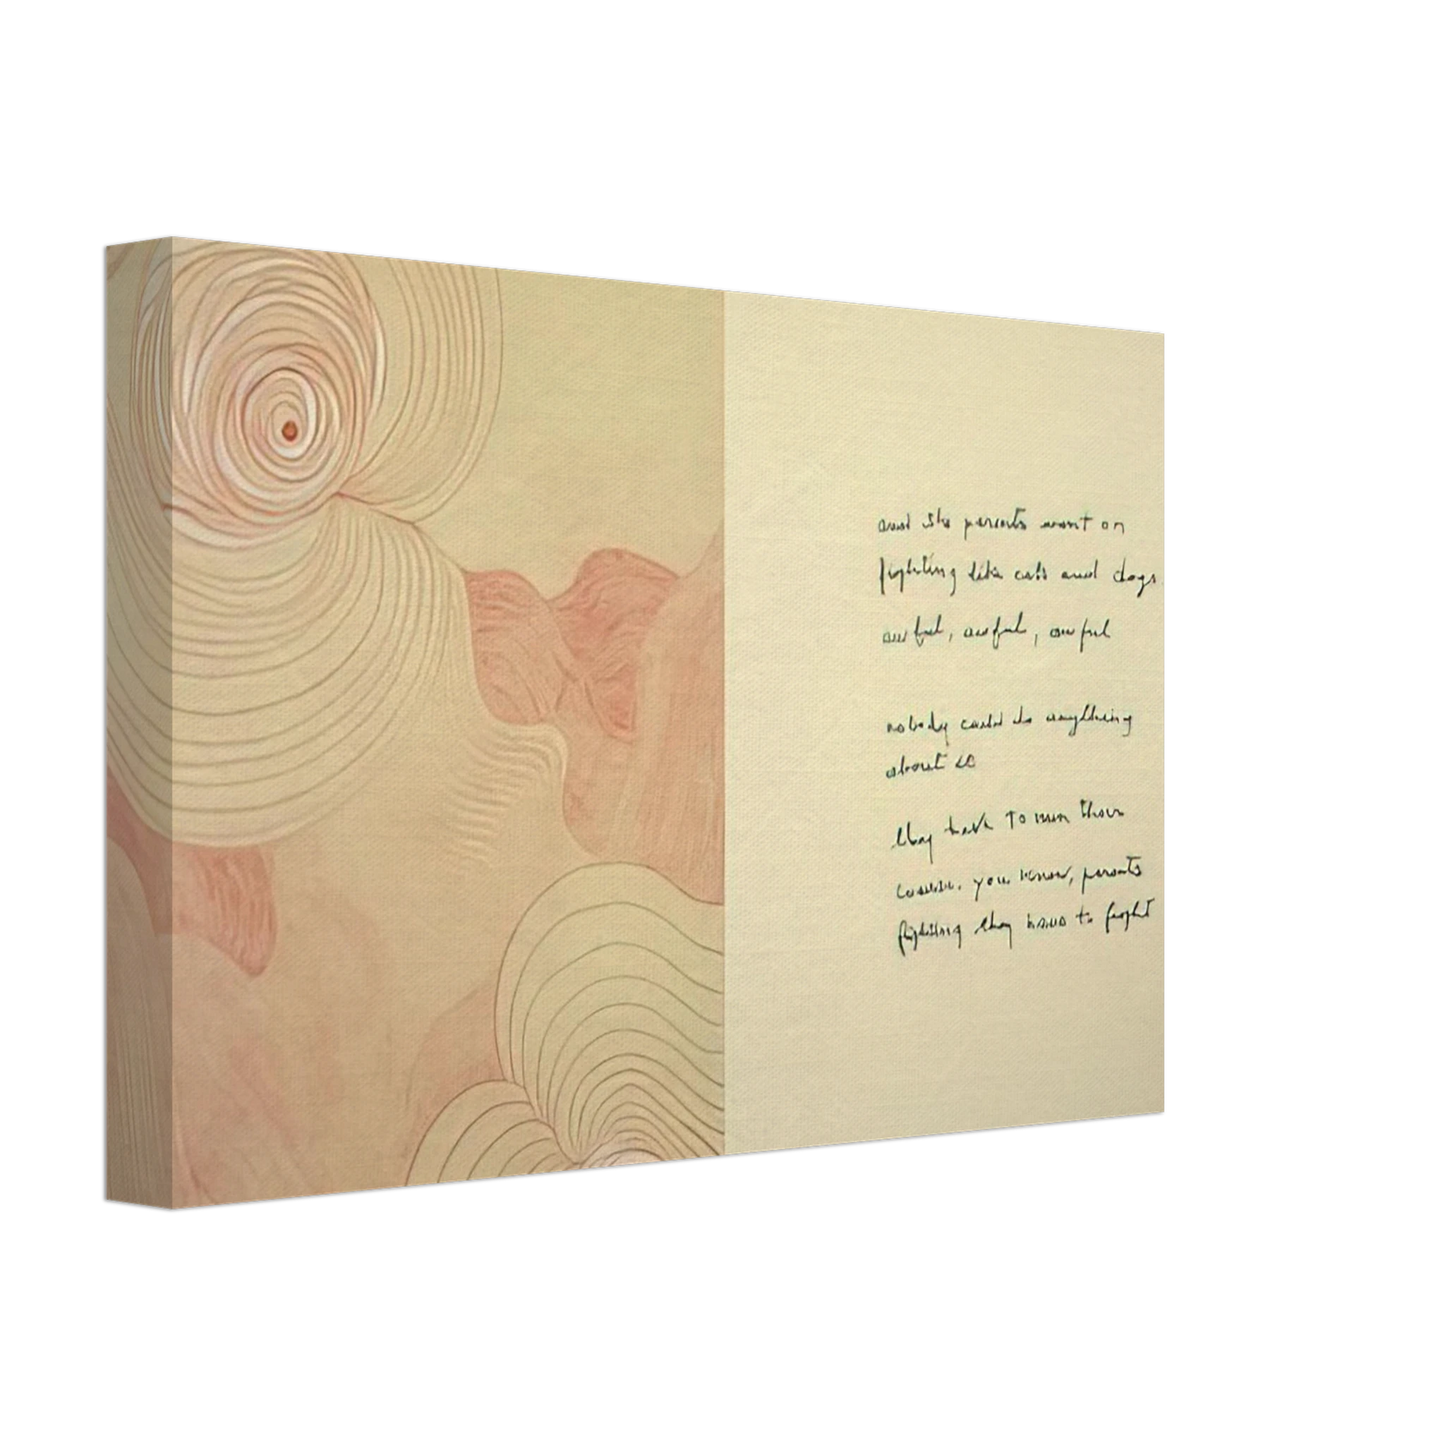 and the parents went on
fighting like cats and dogs
awful, awful, awful
nobody could do anything
about it
they have to run their
course. you know, parents
fighting they have to fight